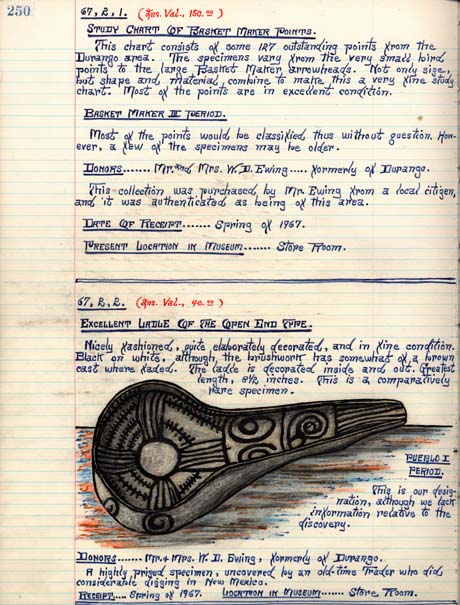 250
67, 2, 1. (Ins. Val., 150.00)
Study Chart Of Basket Maker Points.
This chart consists of some 127 outstanding points from the
Durango area. The specimens vary from the very small bird
points to the large Basket Maker arrowheads. Not only size,
but shape and material, combine to make this a very fine study
chart. Most of the points are in excellent condition.
Basket Maker III Period.
Most of the points would be classified thus without question. How-
ever, a few of the specimens may be older.
Donors....... Mr. and Mrs. W. D. Ewing.... formerly of Durango.
This collection was purchased by Mr. Ewing from a local citizen,
and it was authenticated as being of this area.
Date Of Receipt....... Spring of 1967.
Present Location in Museum....... Store Room.
67, 2, 2. (Ins. Val., 40.00)
Excellent Ladle Of The Open End Type.
Nicely fashioned, quite elaborately decorated, and in fine condition.
Black on white, although the brushwork has somewhat of a brown
cast where faded. The ladle is decorated inside and out. Greatest
length, 8½ inches. This is a comparatively
rare specimen.
Pueblo I
Period.
This is our desig-
nation, although we lack
information relative to the
discovery.
Donors....... Mr. & Mrs. W. D. Ewing, formerly of Durango.
A highly prized specimen, uncovered by an old-time Trader who did
considerable digging in New Mexico.
Receipt.... Spring of 1967. Location in Museum....... Store Room.